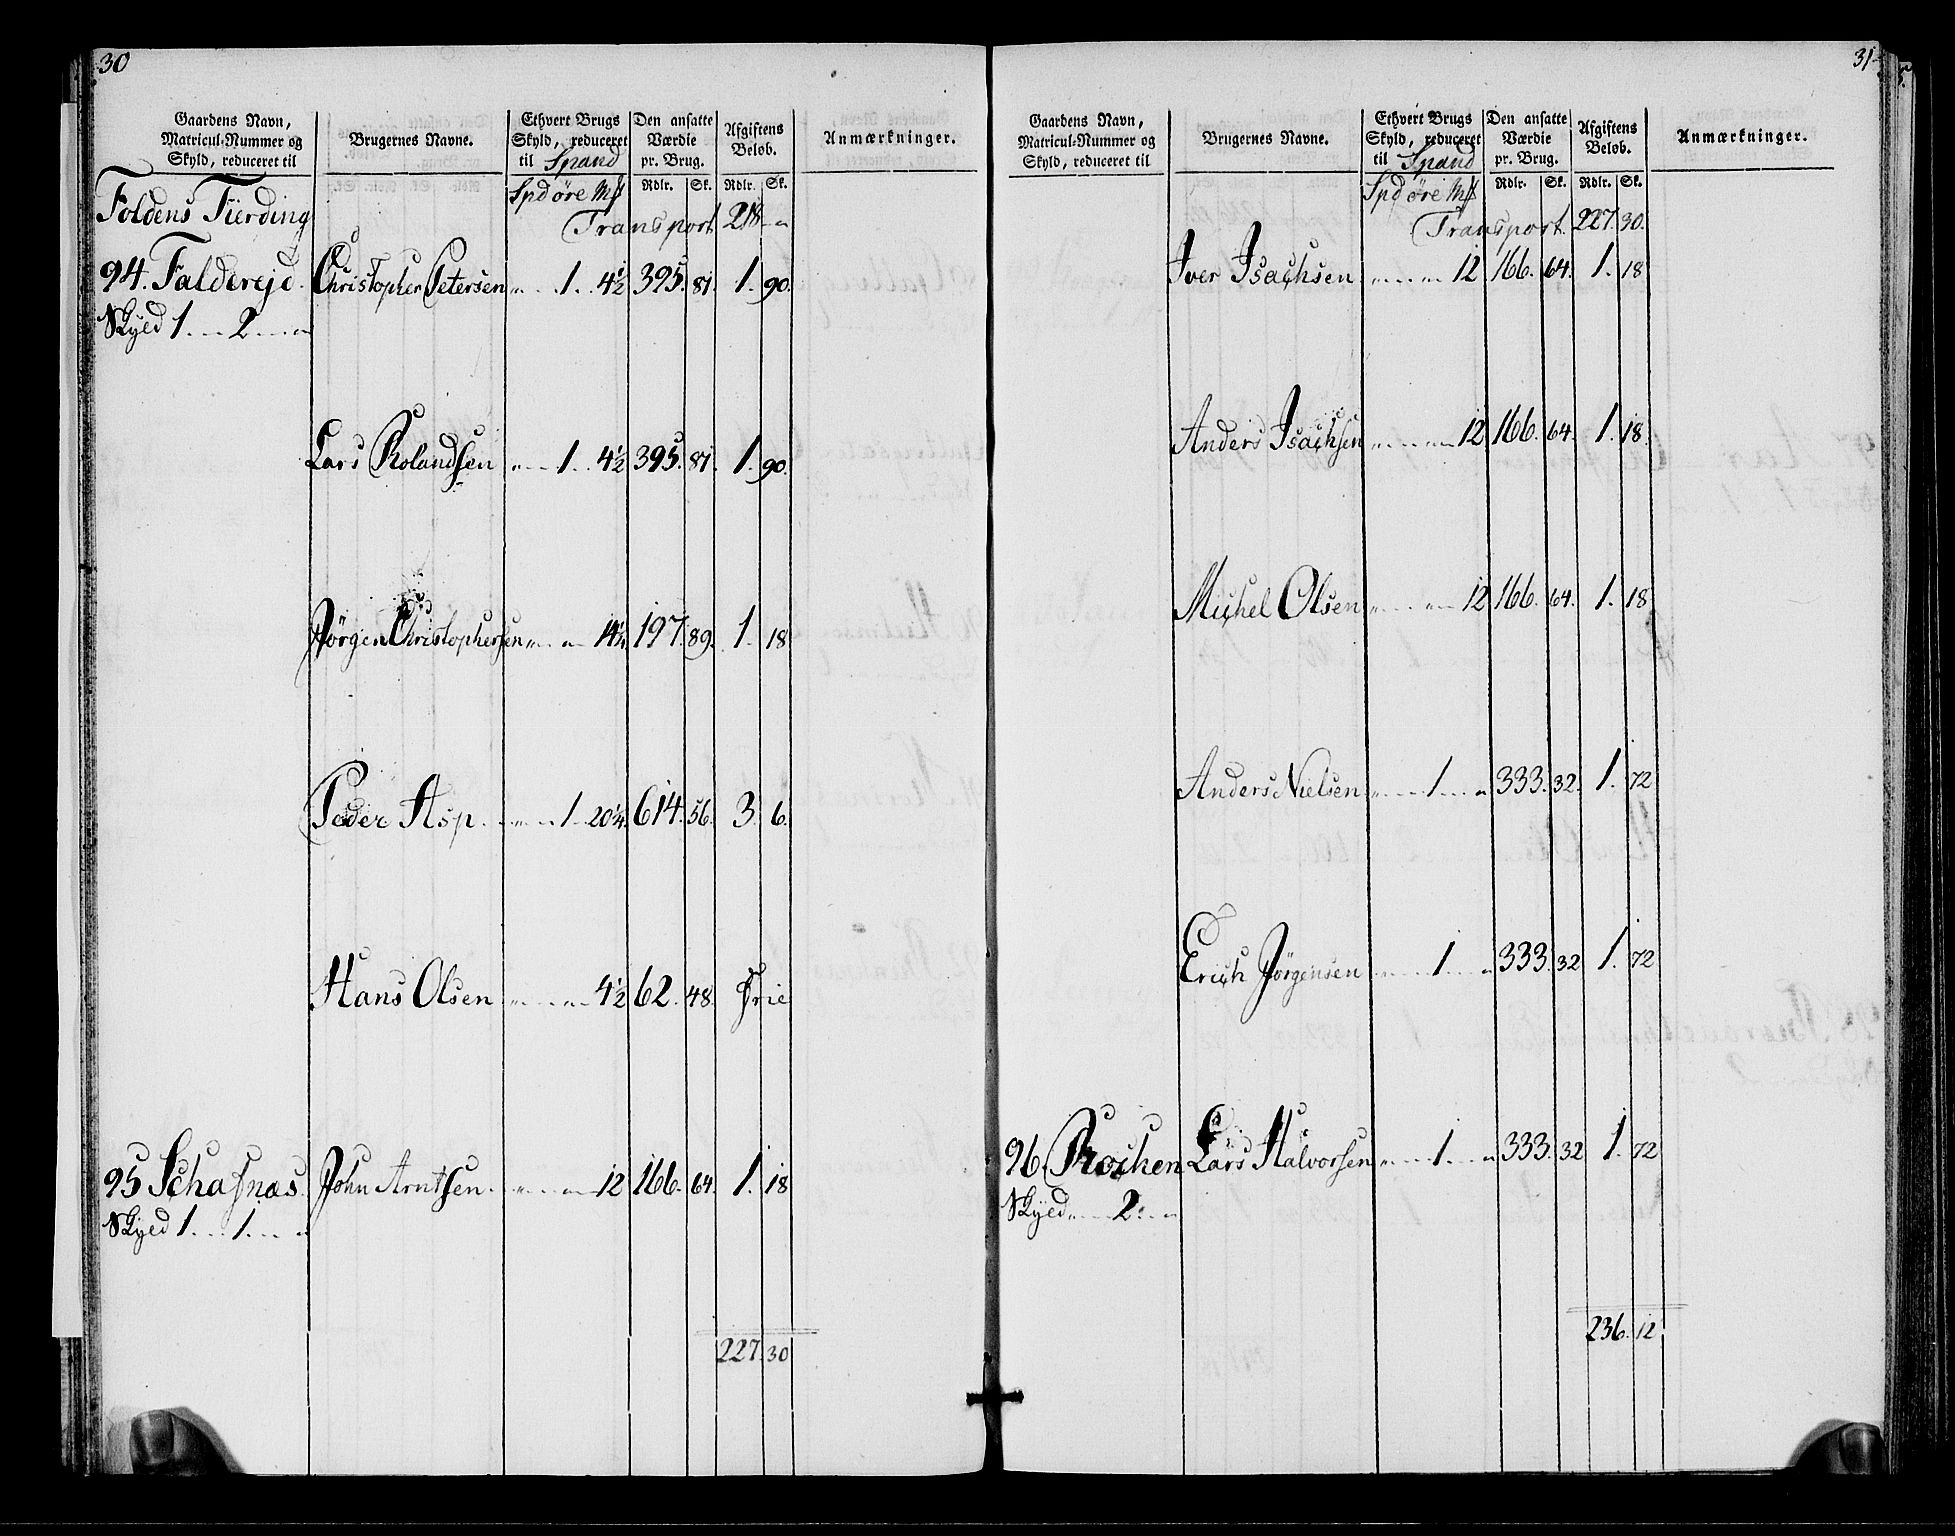 30
Gaardens Navn, Matricul-Nummer og Skyld, reduceret til
Brugernes Navne.
Ethvert Brugs Skyld, reduceret til Spand
Den ansatte Værdie pr. Brug.
Afgiftens Beløb.
Anmærkninger.
Rdlr. Sk. Rdlr. Sk.
Foldens Fierding Spd öre Mk
Transport 218 " "
94. Falderejd. Christopher Petersen " " 1. 4½ 395. 81. 1. 90.
Skyld 1. " 2. " "
Lars Rolandsen " " 1. 4½ 395. 81. 1. 90.
Jörgen Christophersen " " 14¼ 197. 89. 1. 18
Peder Asp. " " 1. 20¼. 614. 56. 3. 6.
Hans Olsen " " " 4½ 62. 48. frie
95 Schafnæs. John Arntsen. " " " 12 166. 64. 1. 18
Skyld 1. " 1. " "
227. 30
31
Gaardens Navn, Matricul-Nummer og Skyld, reduceret til
Brugernes Navne.
Ethvert Brugs Skyld, reduceret til Spand
Den ansatte Værdie pr. Brug.
Afgiftens Beløb.
Anmærkninger.
Rdlr. Sk. Rdlr. Sk.
Spd öre Mk
Transport. 227. 30.
Iver Isachsen " " " 12 166. 64. 1. 18
Anders Isachsen " " " 12 166. 64. 1. 18.
Michel Olsen " " " 12 166. 64. 1. 18
Anders Nielsen " " 1. " 333. 32. 1. 72
Erich Jörgensen " " 1. " 333. 32 1. 72
96. Rochen Lars Halvorsen " " 1. " 333. 32 1. 72
Skyld " " 2. " "
236. 12